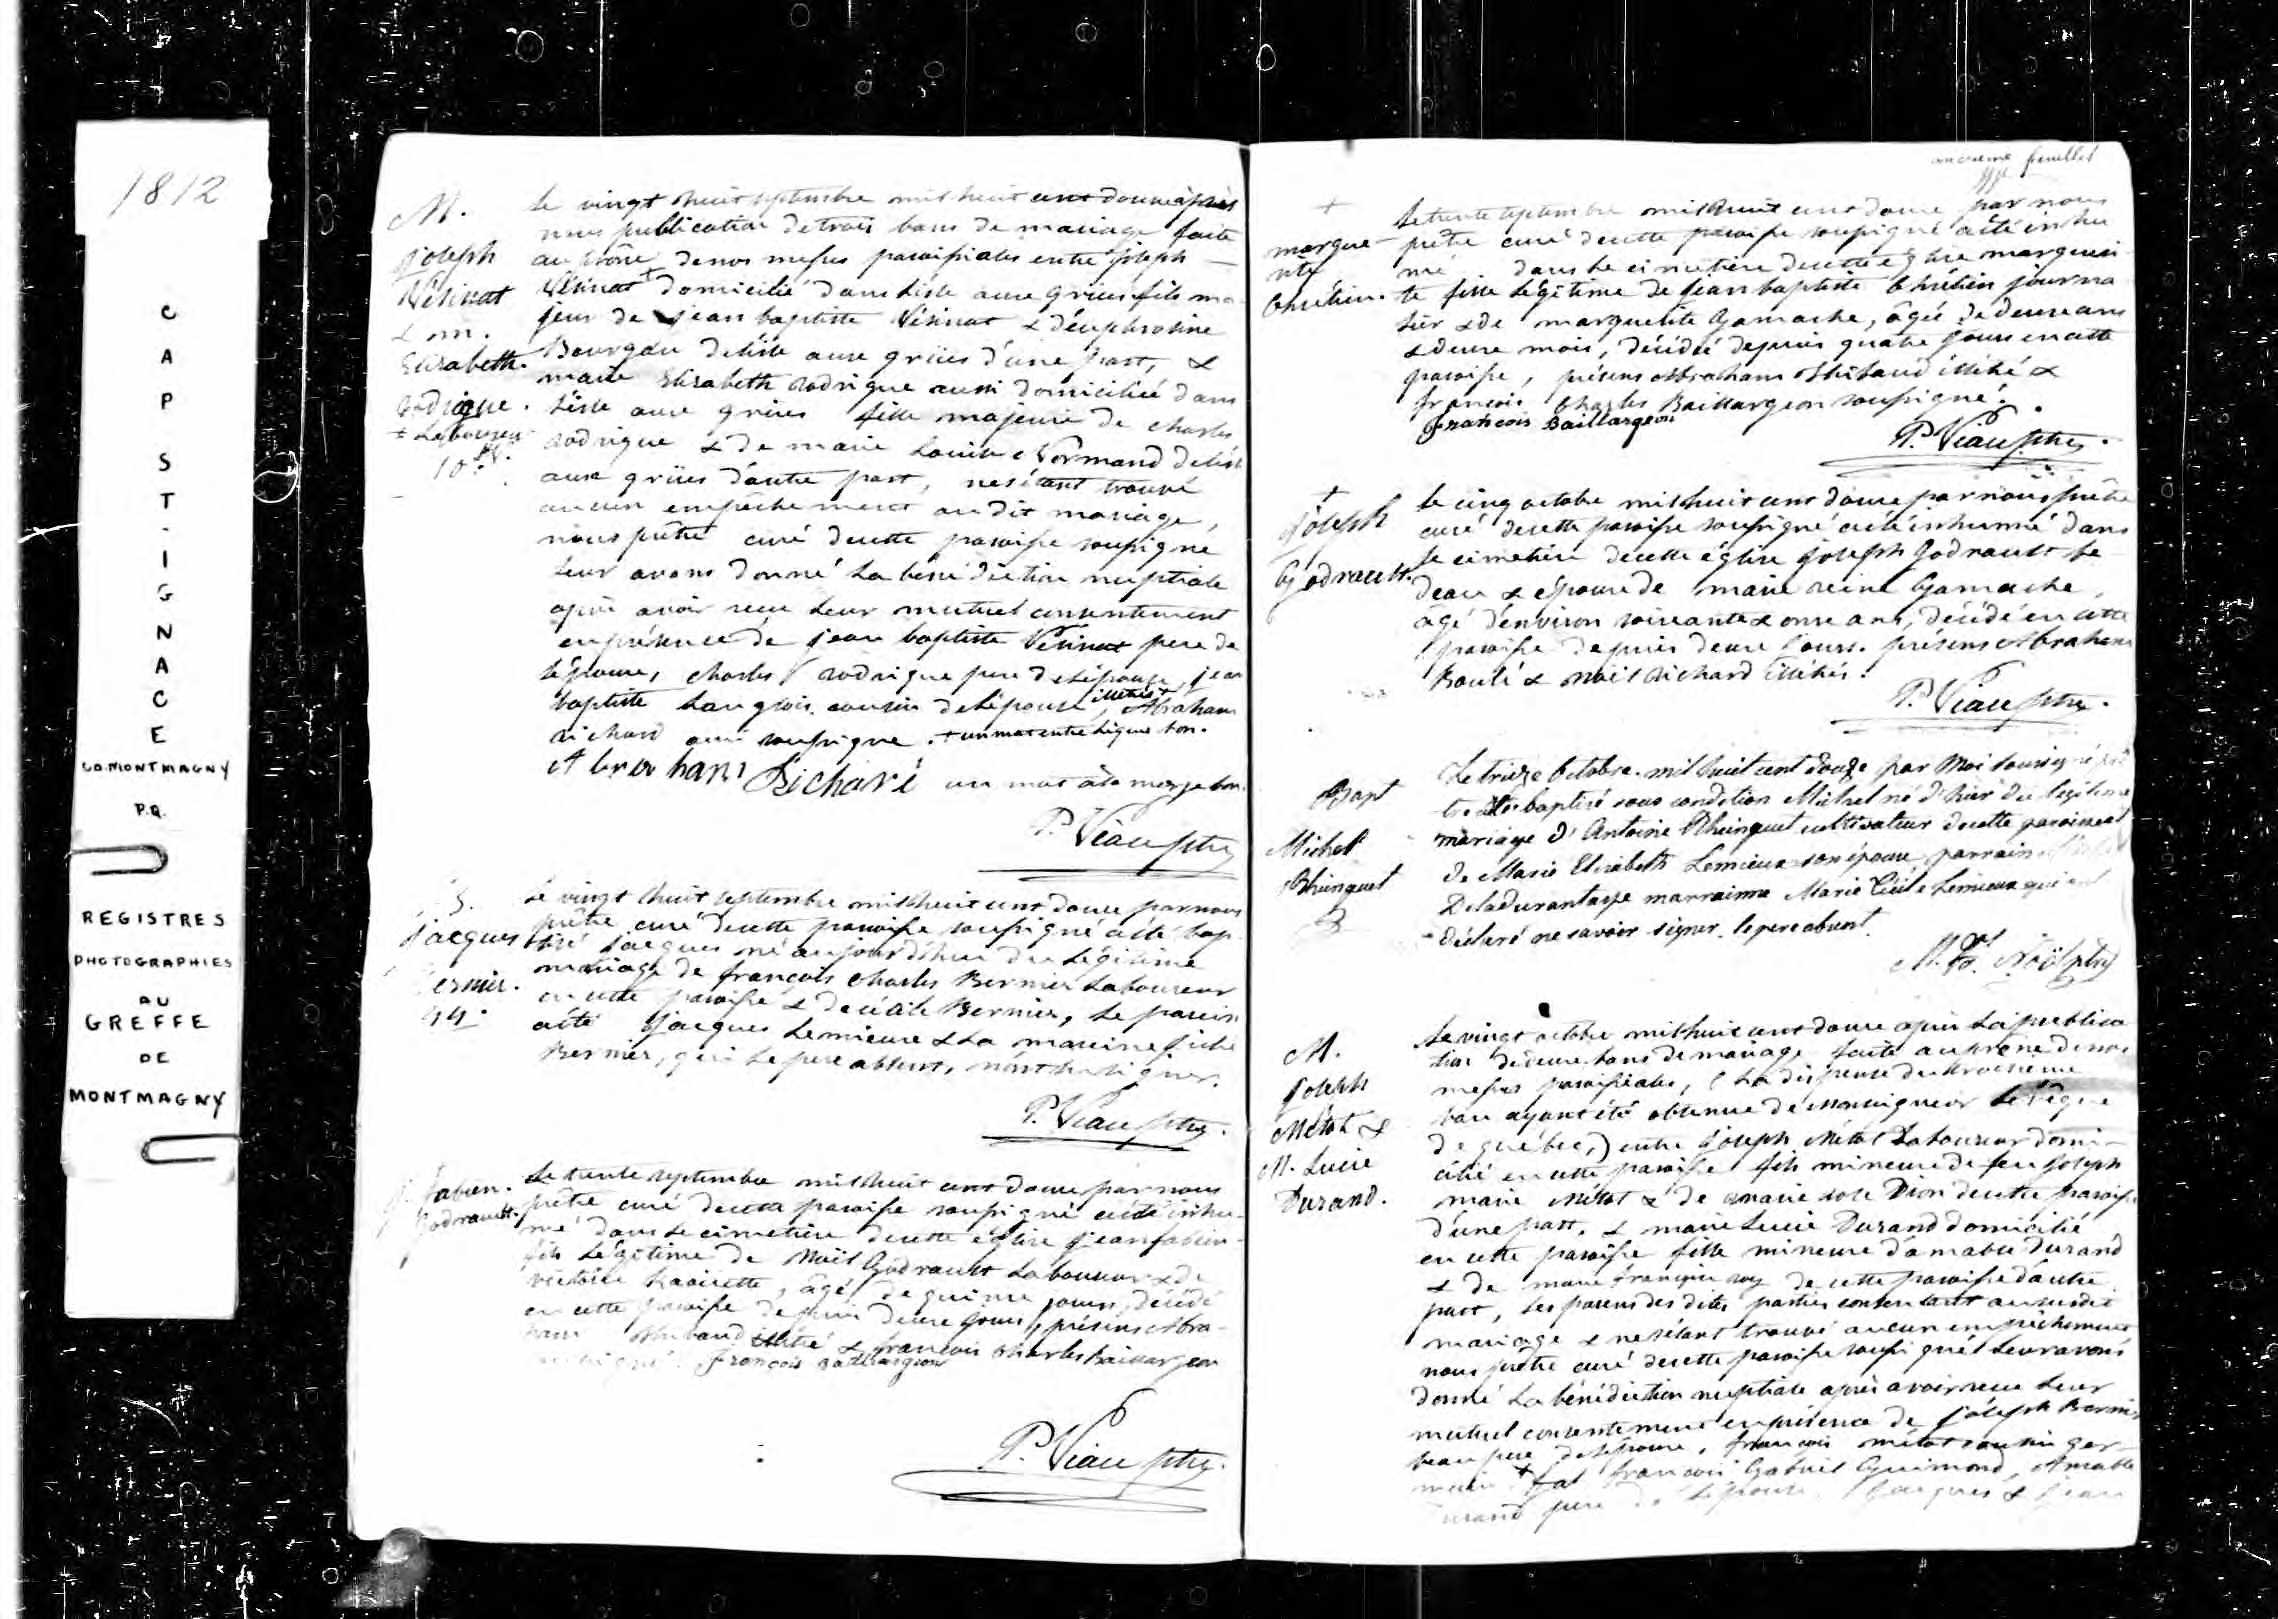 1812
CAP ST-IGNACE
CO. MONTMAGNY
P.Q.
REGISTRES
PHOTOGRAPHIES
AU
GREFFE
DE
MONTMAGNY
M.
joseph
Vésinat
& m.
Elisabeth
rodrigue.
+ Laboureur
10
Le vingt huit septembre mil huit cent douze après
nous publication de trois bans de mariage faite
au prône de nos messes paroissiales entre joseph
Vésinat + domicilié dans l'isle aux grües fils ma
jeur de jean baptiste Vésinat & d'euphrosine
Bourgau de l'isle aux grües d'une part, &
marie Elisabeth rodrigue aussi domiciliée dans
l'isle aux grües fille majeure de charles
rodrigue & de marie Louise Normand de l'isle
aux grües d'autre part, ne s'étant trouvé
aucun empêchement au dit mariage,
nous prêtre curé de cette paroisse soussigné
leur avons donné la bénédiction nuptiale
après avoir reçu leur mutuel consentement
en présence de jean baptiste Vésinat pere de
l'époux, charles rodrigue pere de l'épouse, jean
baptiste Langlois cousin de l'épouse illétrés +, Abraham
richard ami soussigné. + un mot entre ligne bon.
Abraham Richard un mot à la marge bon.
P. Viau ptre
jacques
ernier.
44.
Le vingt huit septembre mil huit cent douze par nous
prêtre curé de cette paroisse soussigné a été bap
tisé jacques né aujourd'hui du légitime
mariage de françois charles Bernier laboureur
en cette paroisse & de cécile Bernier, le parein
a été jacques Lemieux & la mareine
Bernier, qui le pere absent, n'ont su signer.
P. Viau ptre.
fabien
Godrault.
Le trente septembre mil huit cent douze par nous
prêtre curé de cette paroisse soussigné a été inhu-
mé dans le cimetière de cette église jean fabien
fils légitime de Noël Godrault laboureur & de
victoire, âgé de quinze jours, décédé
en cette paroisse depuis deux jours, présens Abra-
ham Thibaud illétré & françois charles Baillargeon
françois Baillargeon
P. Viau ptre.
feuillet
+
margue-
rite
Chrétien.
Le trente septembre mil huit cent douze par nous
prêtre curé de cette paroisse soussigné a été inhu
mé dans le cimetière de cette église margueri
te fille légitime de jean baptiste Chrétien journa
lier & de marguerite Gamache, âgée de deux ans
& deux mois, décédée depuis quatre jours en cette
paroisse, présens Abraham Thibaud illétré &
françois Charles Baillargeon soussigné.
françois Baillargeon
P. Viau ptre.
+
joseph
Godrault.
Le cinq octobre mil huit cent douze par nous prêtre
curé de cette paroisse soussigné a été inhumé dans
le cimetière de cette église joseph Godrault be
deau & époux de marie reine Gamache,
âgé d'environ soixante & onze ans, décédé en cette
paroisse depuis deux jours. présens Abraham
Boulé & noël richard illétrés.
P. Viau ptre.
Bapt
Michel
Rhinguet
Le treize Octobre mil huit cent douze par Moi soussigné prê
tre a été baptisé sous condition Michel né d'hier du legitime
mariage d'Antoine Rhinguet cultivateur de cette paroisse et
de Marie Elisabeth Lemieux son épouse, parrain
Deladurantaye marraine Marie Cécile Lemieux qui ont
déclaré ne savoir signer. le pere absent.
Noël ptre
M.
joseph
Métot &
M. Lucie
Durand.
Le vingt octobre mil huit cent douze après la publica
tion de deux bans de mariage faite au prône de nos
messes paroissiales, (la dispense du troisieme
ban ayant été obtenue de Monseigneur l'évêque
de québec,) entre joseph Métot laboureur domi-
cilié en cette paroisse fils mineur de feu joseph
marie Métot & de marie rose Dion de cette paroisse
d'une part, & marie Lucie Durand domicilié
en cette paroisse fille mineure d'amable Durand
& de marie françoise roy de cette paroisse d'autre
part, les parens des dites parties consentant au susdit
mariage & ne s'étant trouvé aucun empêchement
nous prêtre curé de cette paroisse soussigné leur avons
donné la bénédiction nuptiale après avoir reçu leur
mutuel consentement en présence de joseph Bernier
beau pere de l'époux, françois métot cousin ger-
main françois Gabriel Guimond, Amable
Durand pere de l'épouse, jacques & jean